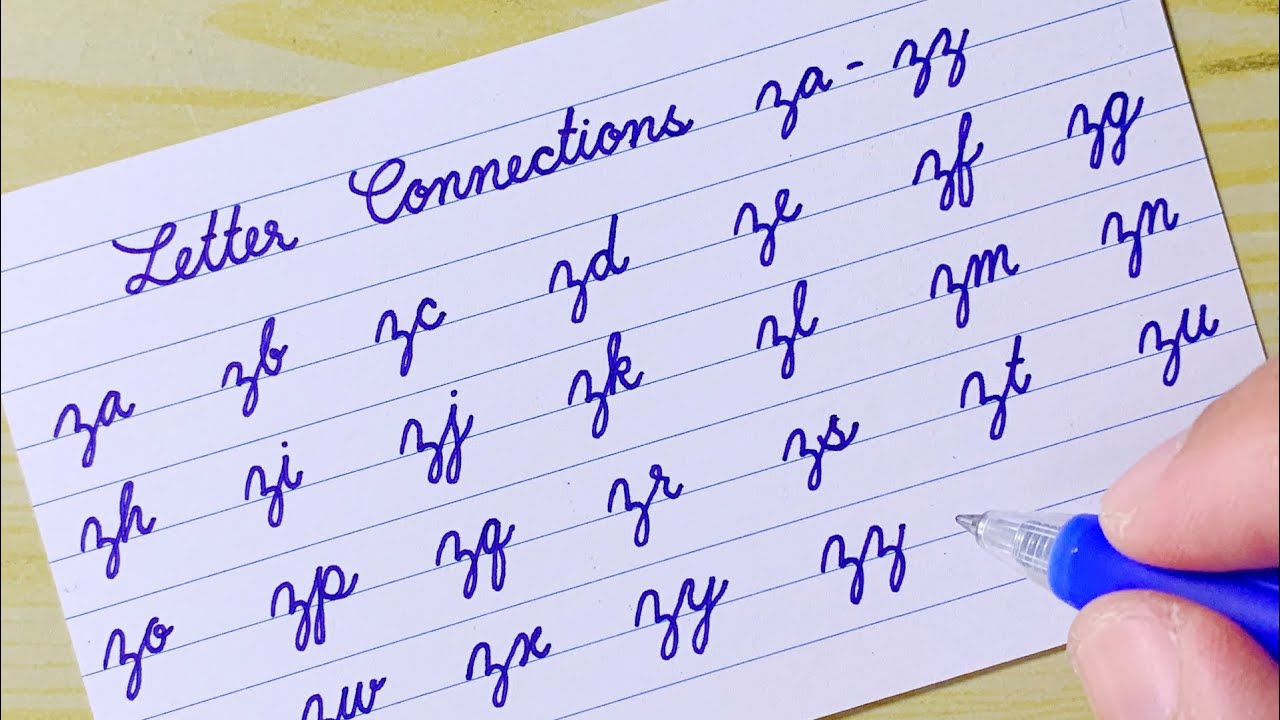 Letter Connections za - zz
za zb zc zd ze zf zg
zh zi zj zk zl zm zn
zo zp zq zr zs zt zu
zw zx zy zz